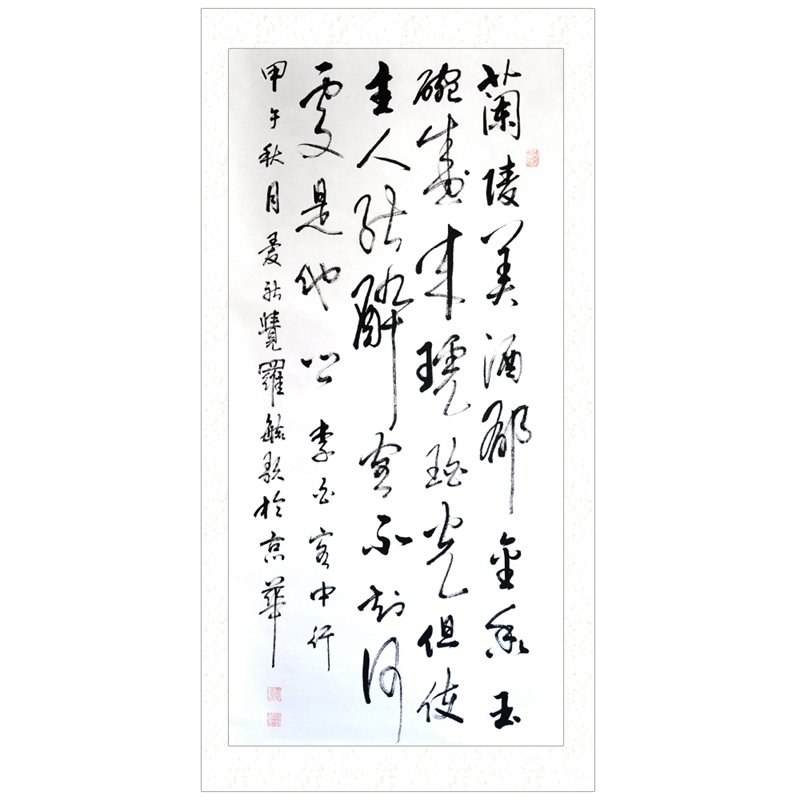 蘭陵美酒郁金香玉
碗盛来琥珀光但使
主人能醉客不知何
處是他鄉 李白客中行
甲午秋月愛新覺羅毓於京華